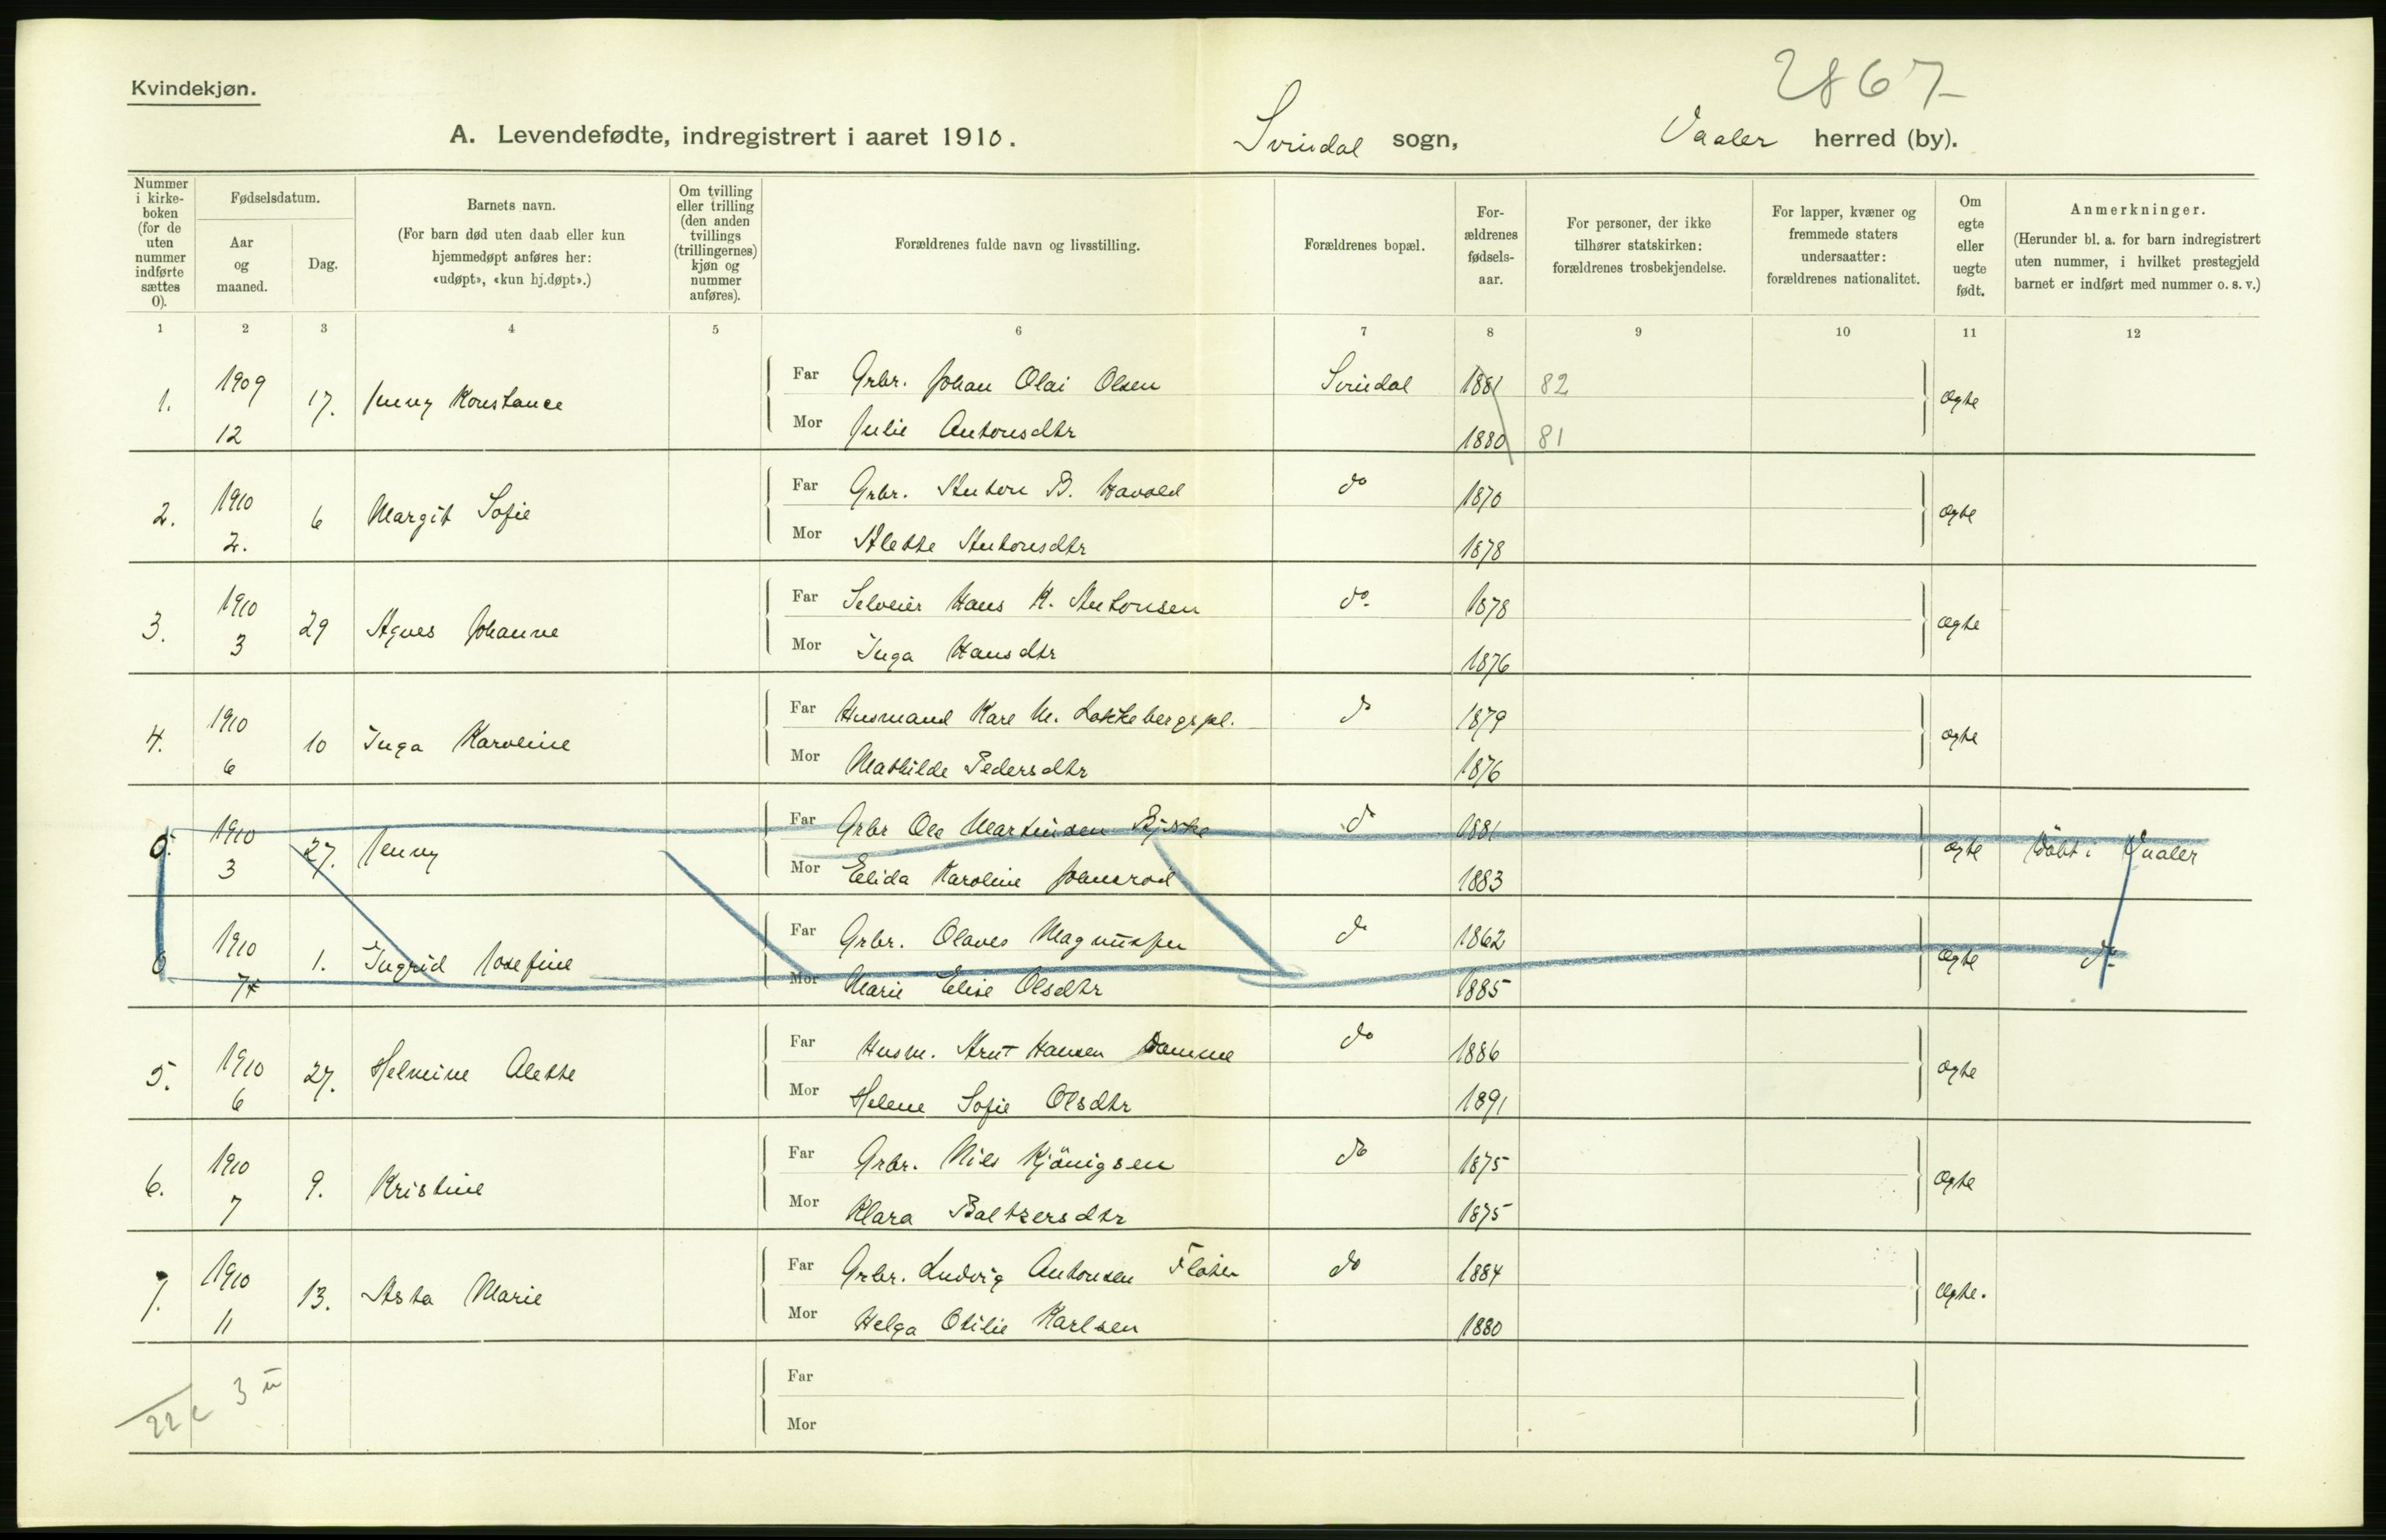 2867
Kvindekjøn.
A. Levendefødte, indregistrert i aaret 1910.
Svindal sogn,
Vaaler herred (by).
Nummer i kirke-boken (for de uten nummer indførte sættes 0).
Fødselsdatum.
Aar og maaned.
Dag.
Barnets navn.
(For barn død uten daab eller kun hjemmedøpt anføres her: «udøpt», «kun hj.døpt».)
Om tvilling eller trilling (den anden tvillings (trillingernes) kjøn og nummer anføres).
Forældrenes fulde navn og livsstilling.
Forældrenes bopæl.
For-ældrenes fødsels-aar.
For personer, der ikke tilhører statskirken: forældrenes trosbekjendelse.
For lapper, kvæner og fremmede staters undersaatter: forældrenes nationalitet.
Om egte eller uegte født.
Anmerkninger.
(Herunder bl. a. for barn indregistrert uten nummer, i hvilket prestegjeld barnet er indført med nummer o. s. v.)
1 2 3 4 5 6 7 8 9 10 11 12
1. 1909 12 17. Jenny Konstance
Far Grbr. Johan Olai Olsen Svindal 1881 82 ægte
Mor Julie Antonsdtr 1880 81
2. 1910 2. 6 Margit Sofie
Far Grbr. Anton B. Havold do 1870 ægte
Mor Alette Antonsdtr 1878
3. 1910 3 29 Agnes Johanne
Far Selveier Hans K. Antonsen do. 1878 ægte
Mor Inga Hansdtr 1876
4. 1910 6 10 Inga Karoline
Far Husmand Kare M. Løkkebergspl. do 1879 ægte
Mor Mathilde Pedersdtr 1876
0. 1910 3 27. Jenny
Far Grbr Ole Martinsen do 1881 ægte Döbt i Vaaler
Mor Elida Karoline 1883
0 1910 7 1. Ingrid Josefine
Far Grbr. Olaves Magnussen do 1862 ægte do
Mor Marie Elise Olsdtr 1885
5. 1910 6 27. Helmine Alette
Far Husm. Arnt Hansen Damme do 1886 ægte
Mor Helene Sofie Olsdtr 1891
6. 1910 7 9. Kristine
Far Grbr. Nils Kjönigsen do 1875 ægte
Mor Klara Baltzersdtr 1875
7. 1910 11 13. Asta Marie
Far Grbr. Ludvig Antonsen Flöter do 1884 ægte.
Mor Helga Otilie Karlsen 1880
Far
Mor
3
22